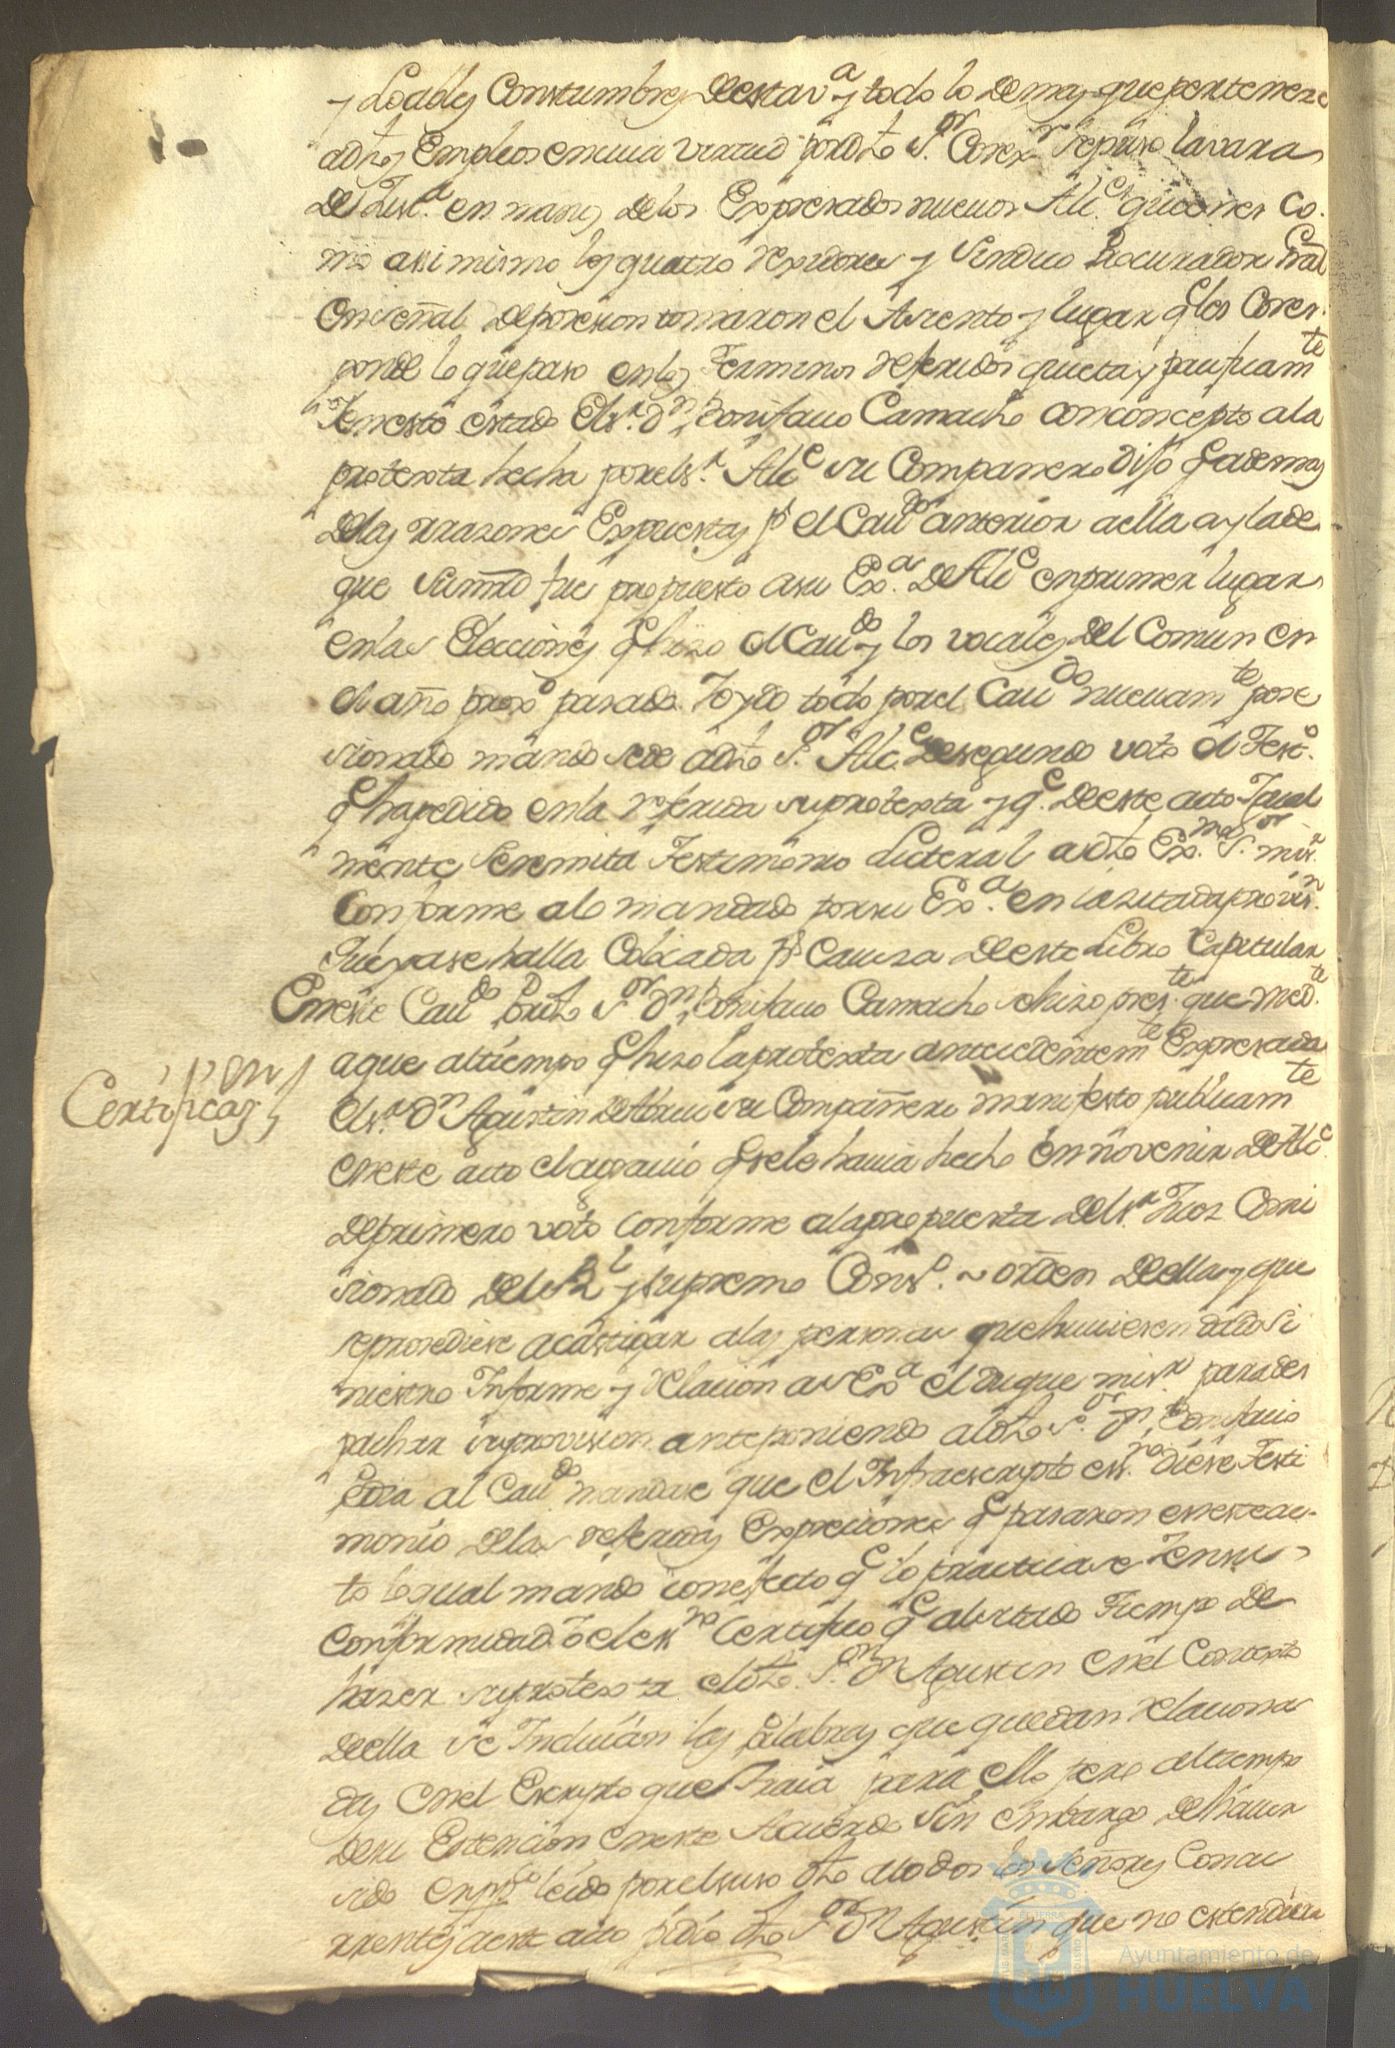 y Loables Constumbres de esta v.ª y todo lo demas que pertenese
a dhos Empleos en cuia virtud por dho S.or Corex.r se puso la vara
de Just.ª en manos de los Expresados nuevos Alc.es quienes Co-
mo assimismo los quatro rexidores y Sindico Procurador Gral
en señal de posesion tomaron el Asiento y lugar q les Corres-
ponde lo que paso en los Terminos referidos quieta y pacificam.te
Y en esto estado El s.r D.n Bonifacio Camacho con concepto a la
protexta hecha por el s.r Alc.e su Compañero Dijo q ademas
de las razones Expuestas p.r el Cau.do anterior a ella ay la de
que su mrd fue propuesto a su Ex.ª de Alc.e en primer lugar
en las Elecciones q hizo el Cau.do y los vocales del Comun en
el año prox.o pasado. Y oydo todo por el Cau.do nuevam.te pose
sionado mando se de a dho S.or Alc.e de segundo voto el Test.o
q ha pedido en la referida su protexta y q.e de este acto Igual
mente se remita Testimonio Literal a dho Ex.mo S.or mi s.r
Conforme a lo mandado por su Ex.ª en la citada provis.n
que ya se halla Colocada p.r Caveza de este Libro Capitular
En este Cau.do por dho S.or D.n Bonifacio Camacho se hizo pres.te que med.te
a que al tiempo q hizo la protexta antecedentem.te Expresada
el s.r D.n Agustin de Abreu su Compañero manifesto publicam.te
en este acto el agravio q se le havia hecho en no venir de Alc.e
de primero voto conforme a la propuesta del s.r Juez Comi
sionado del R.l y supremo Cons.o ~ orden de ella y que
se prosediese a castigar a las personas que huuiesen dado si
niestro Informe y relacion a su Ex.ª el Duque mi s.r para des
pachar su provision anteponiendo a dho S.or D.n Bonifacio
pedia al Cau.do mandase que el Infraescripto ess.no diese Testi
monio de las referidas Expreciones q pasaron en este ac-
to lo qual mando con efecto q.e lo practicase Y en su
Conformidad Yo el ess.no Certifico q.e al citado Tiempo de
hazer su protexta el dho S.or D.n Agustin en el Contexto
de ella se Incluian las palabras que quedan relaciona
das en el Escripto que traia para ello pero al tiempo
de su Estencion en este Acuerdo sin embargo de haver
sido leido por el suso dho a todos los Señores Concu
rrentes a este acto pidio dho S.or D.n Agustin que no estendiera
p.on
Certificaz.n
Ayuntamiento de
HUELVA